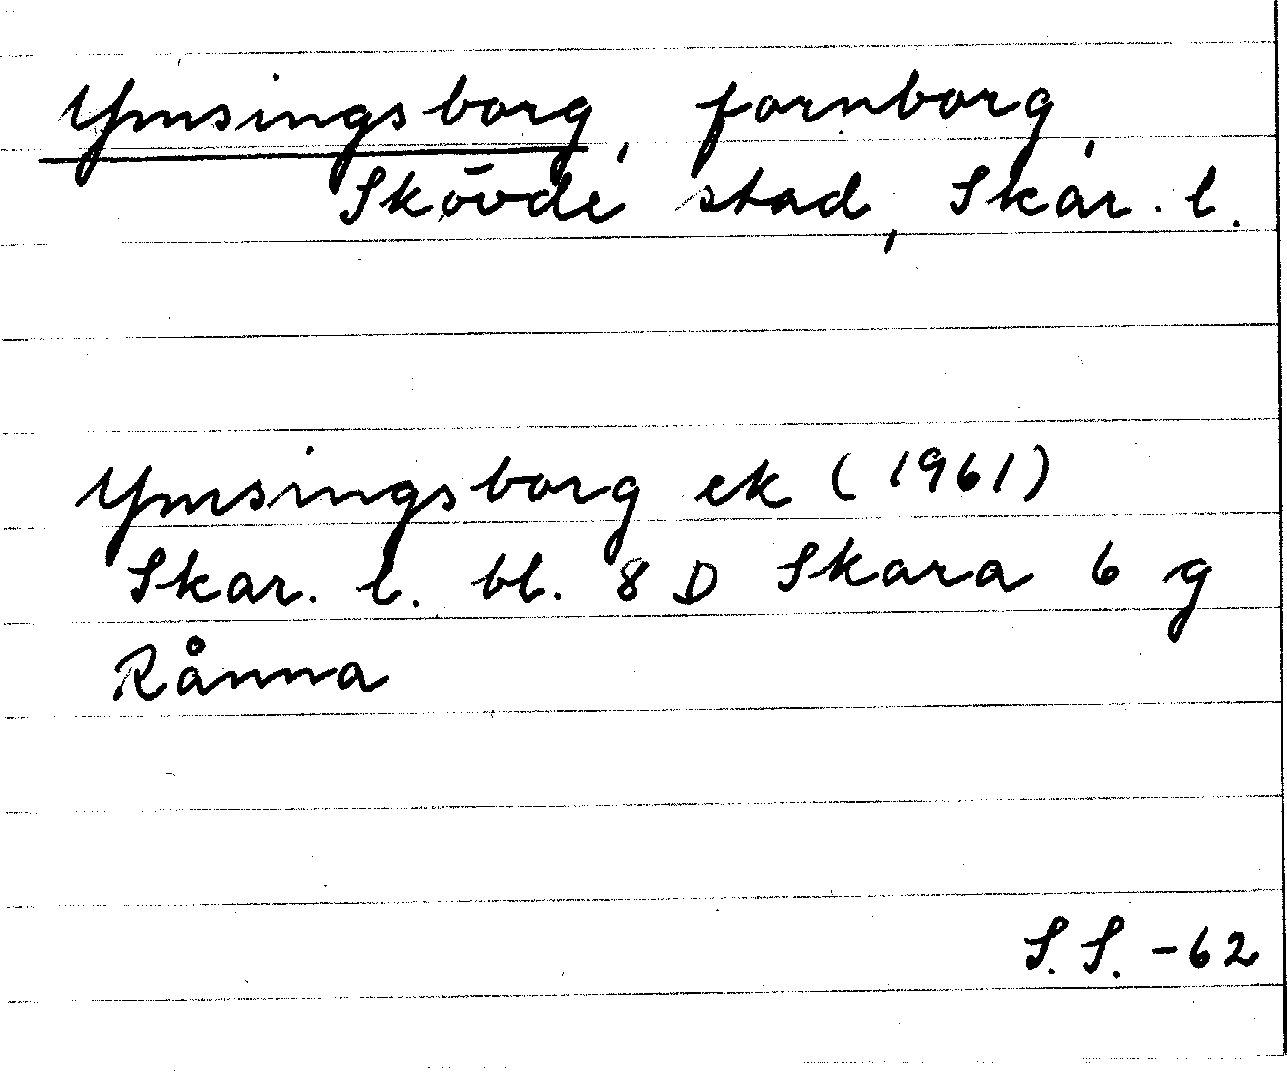 Ymsingsborg, fornborg,
Skövde stad, Skar. l.
Ymsingsborg ek (1961)
Skar. l. bl. 8 D Skara 6 g
Rånna
S. S. -62